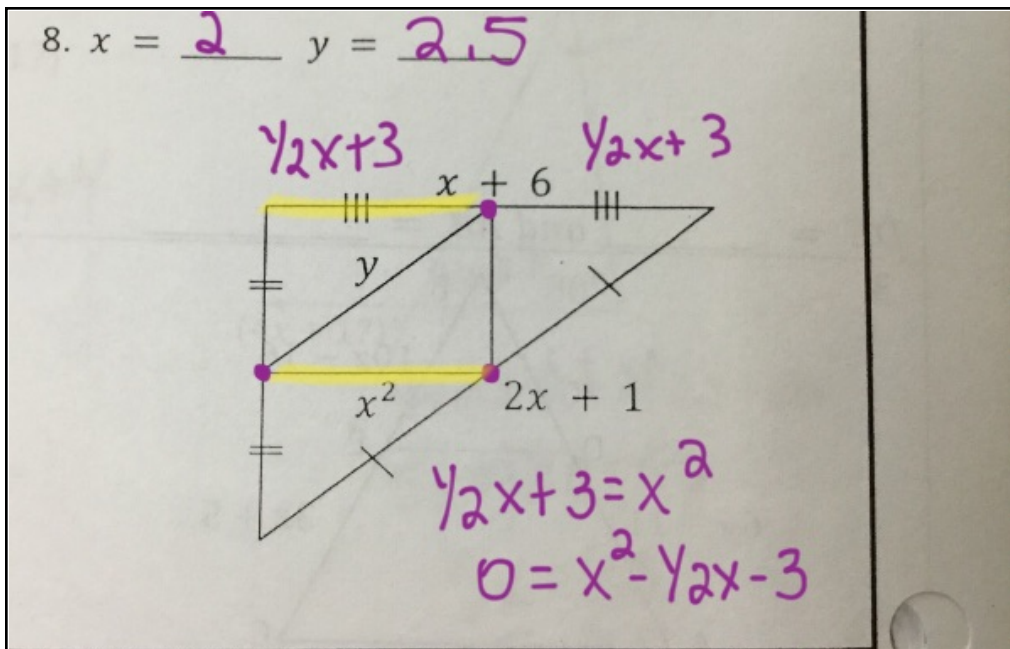 8. x = 2 y = 2.5
½x+3 ½x+3
x + 6
y
x²
2x + 1
½x+3=x²
0=x²-½x-3